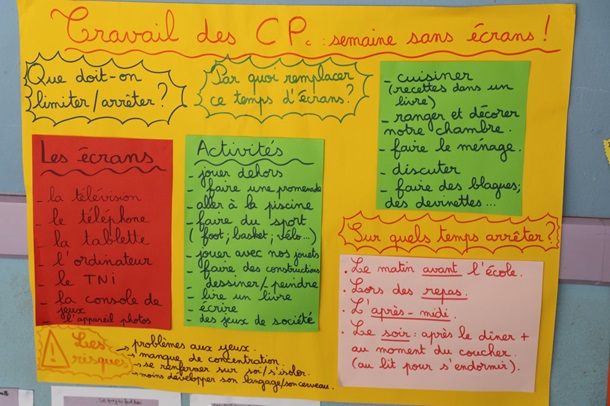 Travail des CPc : semaine sans écrans !
Que doit-on
limiter/arrêter ?
Par quoi remplacer
ce temps d'écrans ?
Les écrans
- la télévision
- le téléphone
- la tablette
- l'ordinateur
- le TNi
- la console de
jeux
- l'appareil photos
Activités
- jouer dehors
- faire une promenade
- aller à la piscine
- faire du sport
(foot; basket; vélo...)
- jouer avec nos jouets
- faire des constructions
dessiner/peindre
- lire un livre
- écrire
- des jeux de société
- cuisiner
(recettes dans un
livre)
- ranger et décorer
notre chambre.
- faire le ménage.
- discuter
- faire des blagues;
des devinettes...
Sur quels temps arrêter ?
. Le matin avant l'école.
. Lors des repas.
. L'après-midi.
. Le soir : après le dîner +
au moment du coucher.
(au lit pour s'endormir).
! Les
risques
→ problèmes aux yeux.
→ manque de concentration.
→ se renfermer sur soi/s'isoler.
→ moins développer son langage/son cerveau.